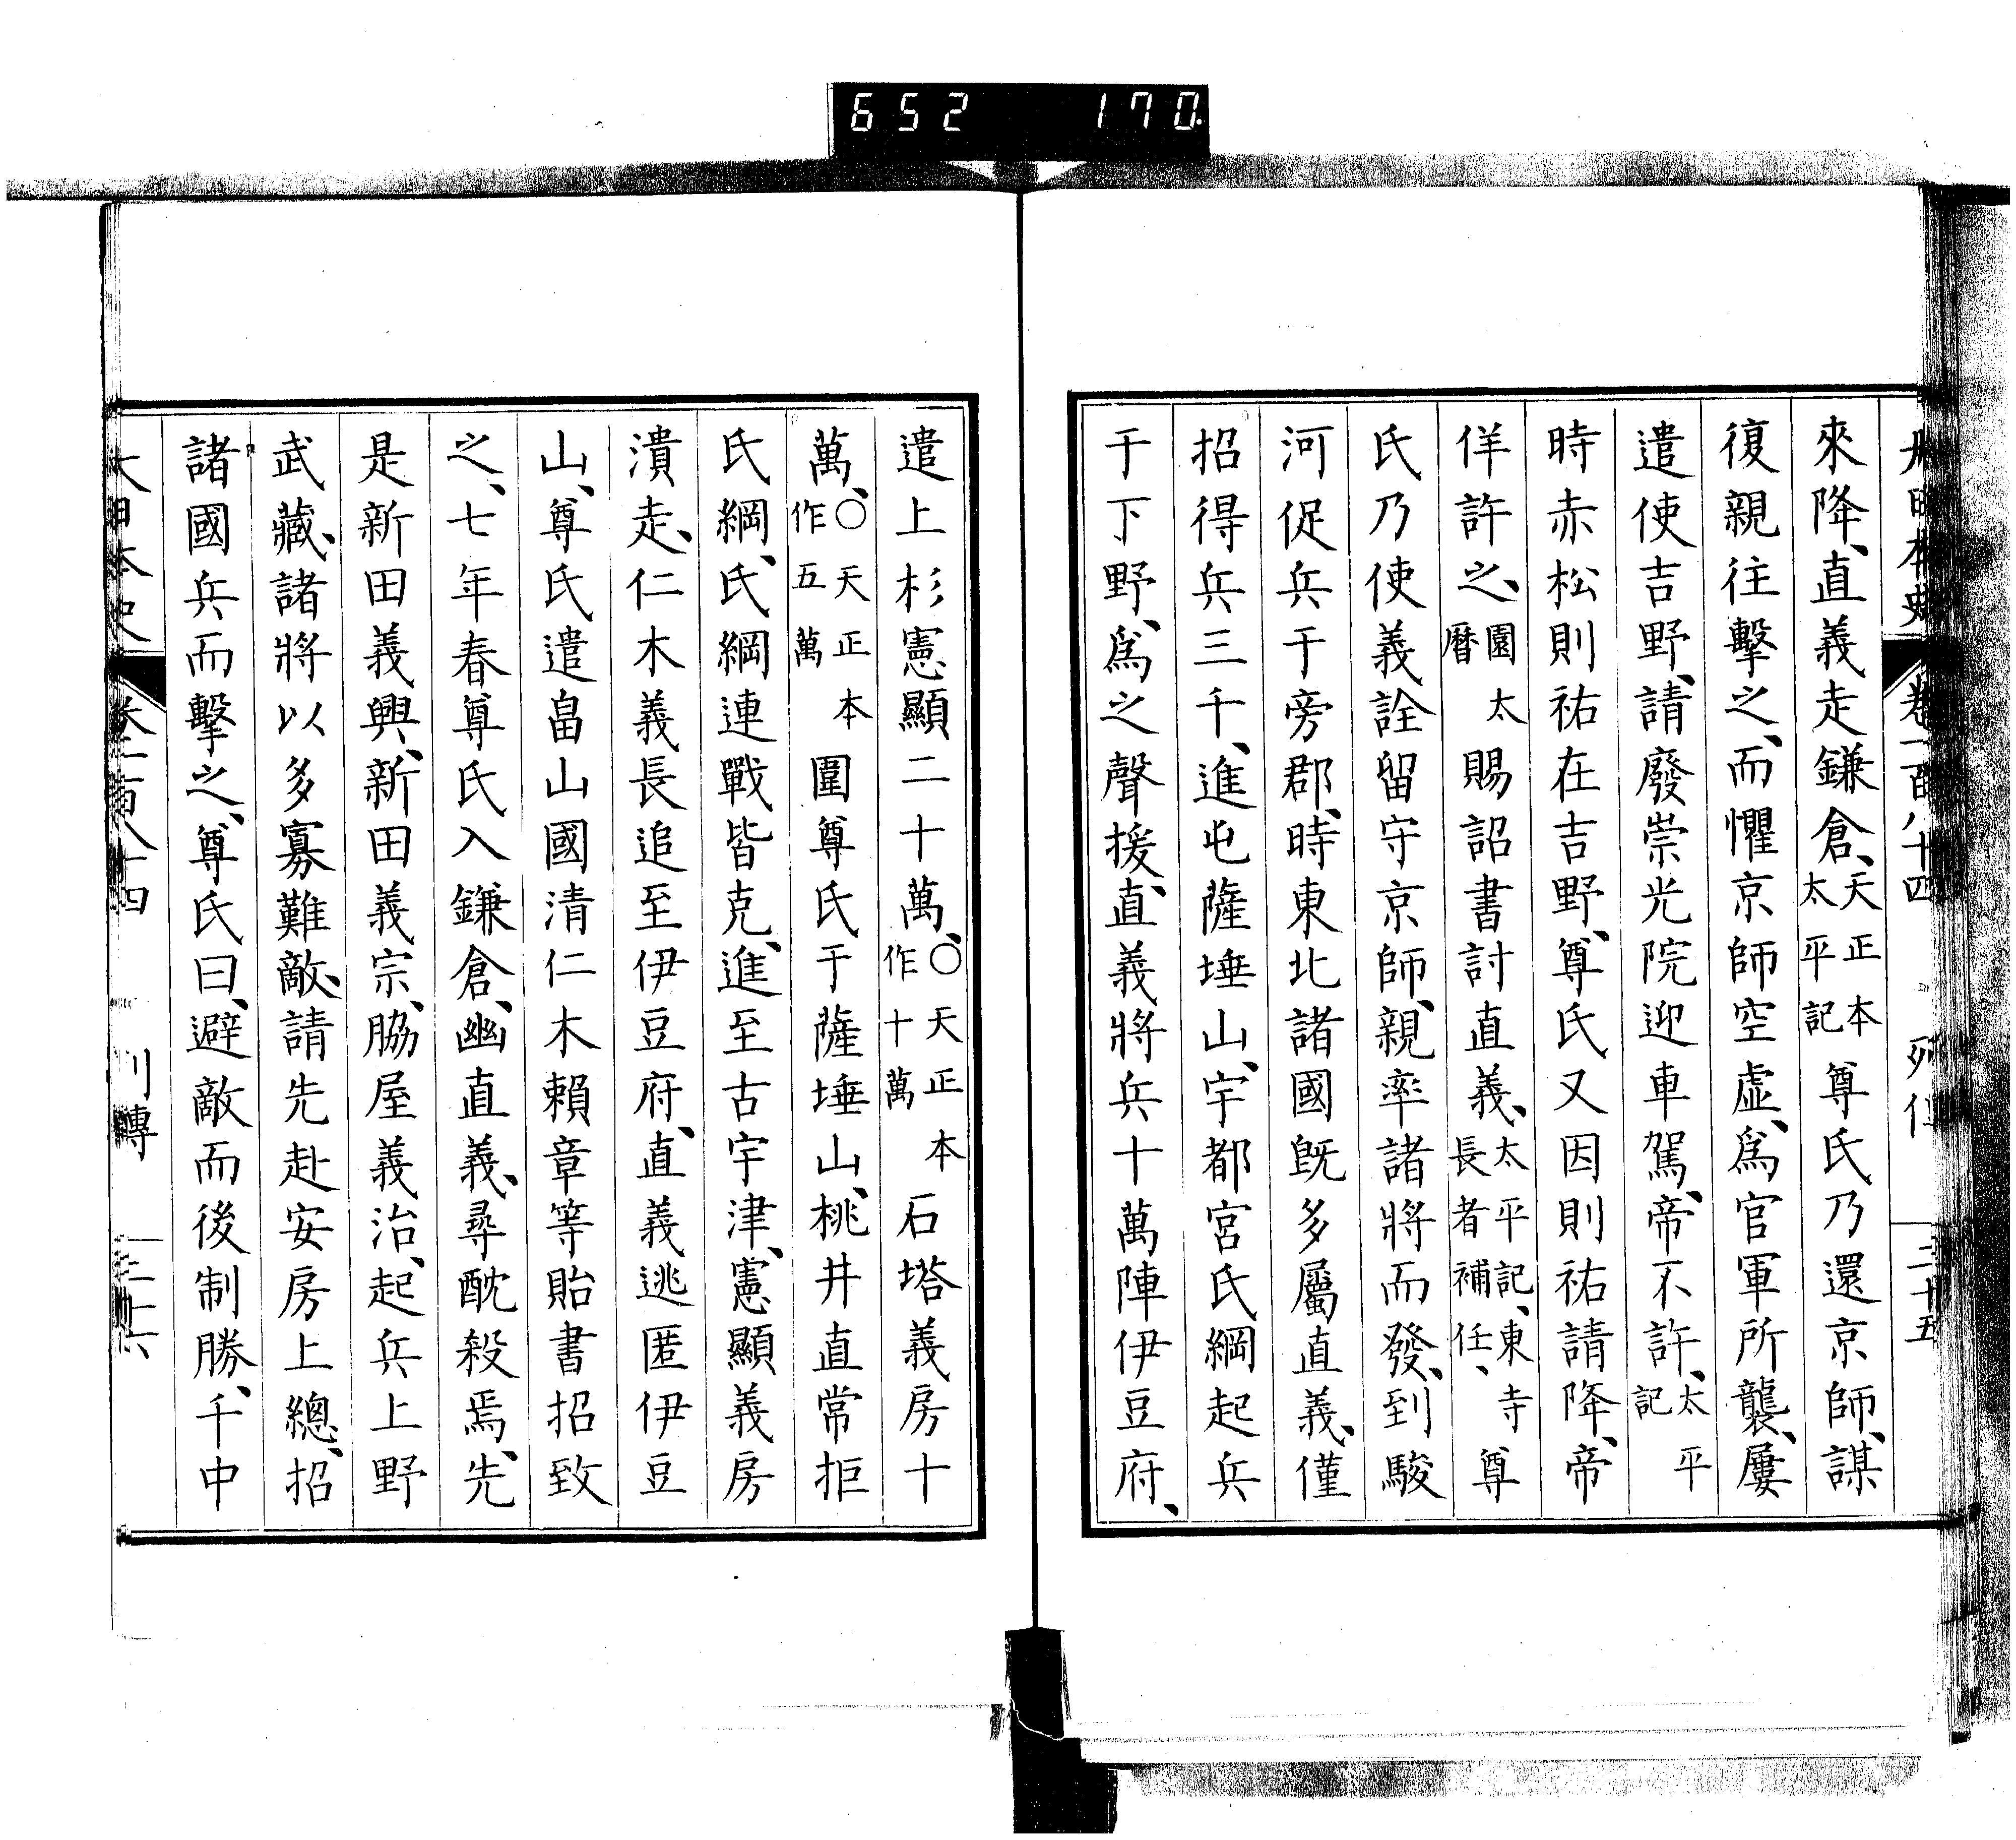 652 170
大日本史 卷一百八十四 列傳 二十五
來降、直義走鎌倉、天正本太平記尊氏乃還京師、謀
復親往擊之、而懼京師空虛、爲官軍所襲、屢
遣使吉野、請廢崇光院迎車駕、帝不許、太平記
時赤松則祐在吉野、尊氏又因則祐請降、帝
佯許之、園太曆賜詔書討直義、太平記、東寺長者補任、尊
氏乃使義詮留守京師、親率諸將而發、到駿
河促兵于旁郡、時東北諸國旣多屬直義、僅
招得兵三千、進屯薩埵山、宇都宮氏綱起兵
于下野、爲之聲援、直義將兵十萬陣伊豆府、
遣上杉憲顯二十萬、○天正本作十萬石塔義房十
萬、○天正本作五萬圍尊氏于薩埵山、桃井直常拒
氏綱、氏綱連戰皆克、進至古宇津、憲顯義房
潰走、仁木義長追至伊豆府、直義逃匿伊豆
山、尊氏遣畠山國清仁木賴章等貽書招致
之、七年春尊氏入鎌倉、幽直義、尋酖殺焉、先
是新田義興、新田義宗、脇屋義治、起兵上野
武藏、諸將以多寡難敵、請先赴安房上總、招
諸國兵而擊之、尊氏曰、避敵而後制勝、千中
大日本史 卷一百八十四 列傳 二十六